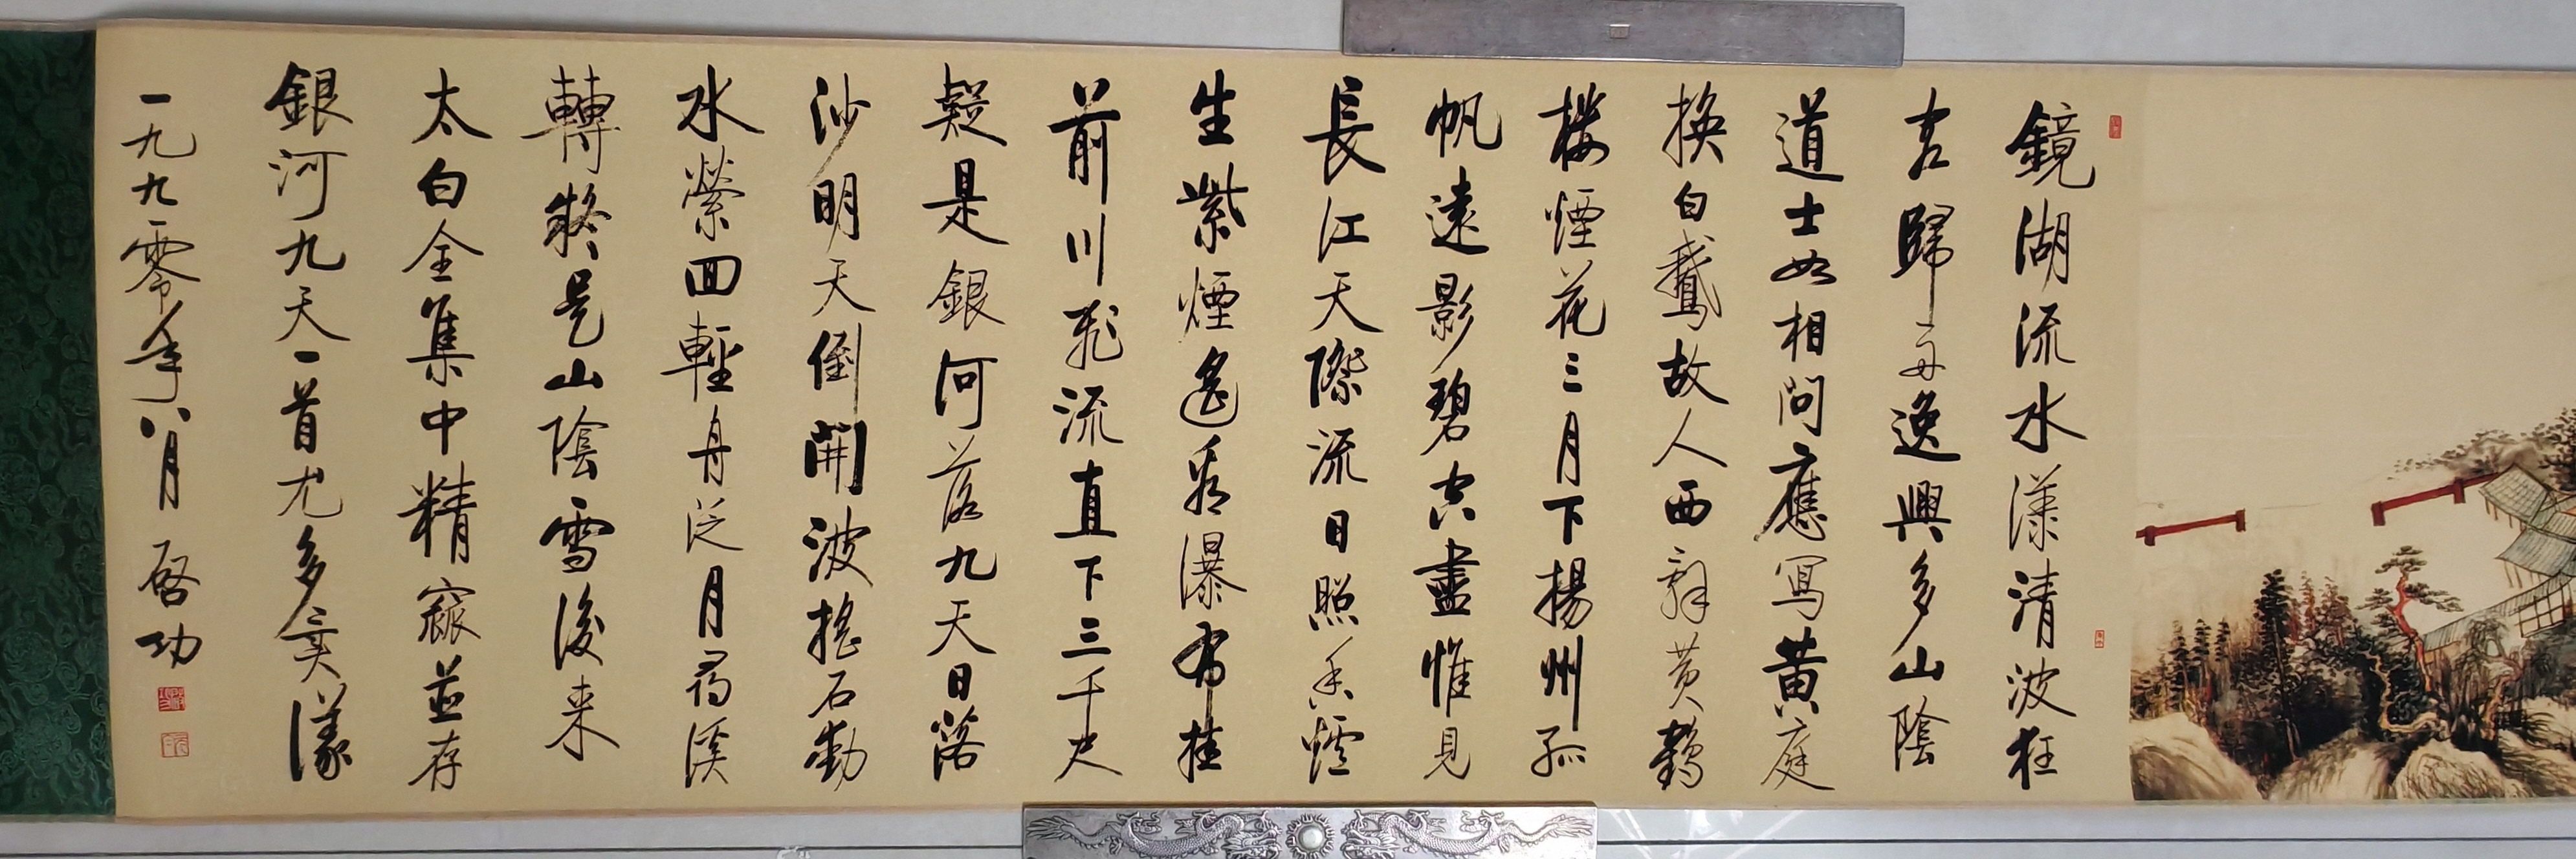 鏡湖流水漾清波狂
客歸舟逸興多山陰
道士如相問應寫黃庭
換白鵝故人西辭黃鶴
樓煙花三月下揚州孤
帆遠影碧空盡惟見
長江天際流日照香爐
生紫煙遙看瀑布挂
前川飛流直下三千尺
疑是銀河落九天日落
沙明天倒開波搖石動
水縈回輕舟泛月尋溪
轉疑是山陰雪後来
太白全集中精窺並存
銀河九天一首尤多美漾
一九九零年八月 啓功